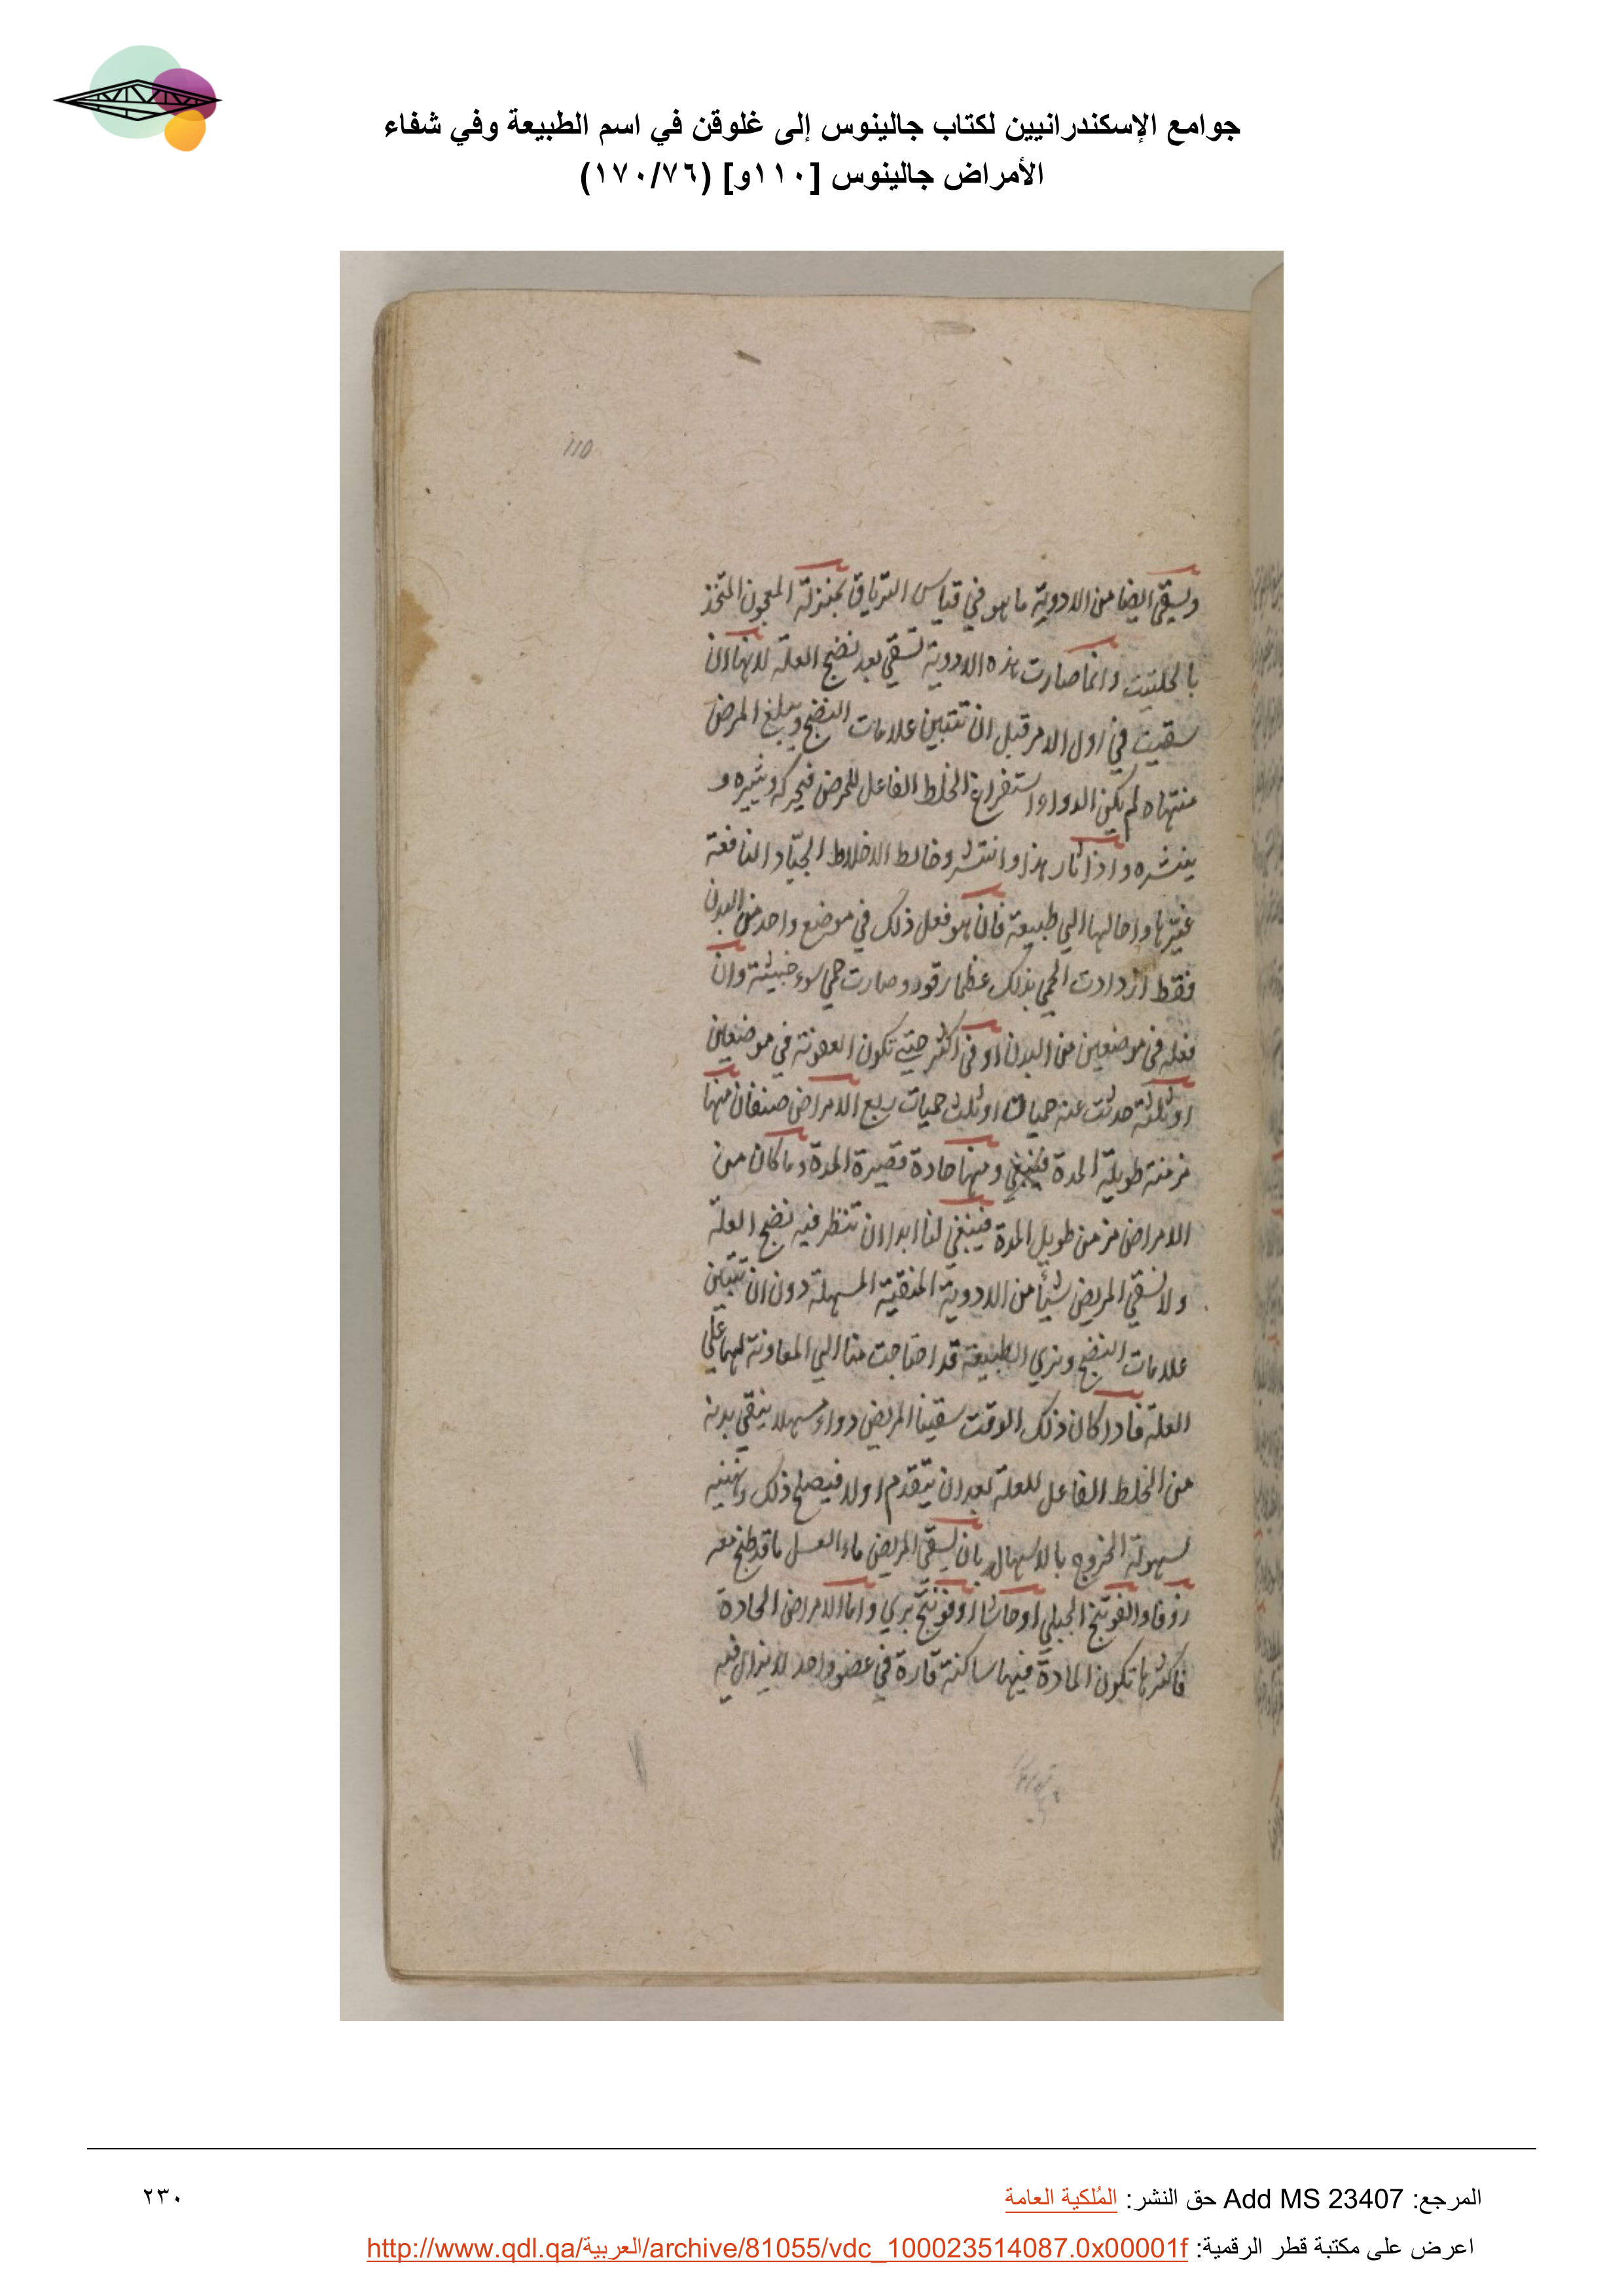 جوامع الإسكندرانيين لكتاب جالينوس إلى غلوقن في اسم الطبيعة وفي شفاء
الأمراض جالينوس [١١٠و] (١٧٠/٧٦)
110
ويسقي ايضا من الادوية ما هو في قياس الترياق بمنزلة المعجون المتخذ
بالحلتيت وانما صارت هذه الادوية تسقي بعد نضج العلة لانها ان
سقيت في اول الامر قبل ان تتبين علامات النضج ويبلغ المرض
منتهاه لم يكن الدواء استفراغ الخلط الفاعل للمرض فيحركه ويثيره و
ينشره واذا ثار هذا وانتشر وخالط الاخلاط الجياد النافعة
غيرها واحالها الي طبيعة فان هو فعل ذلك في موضع واحد من البدن
فقط ازدادت الحمي بذلك عظما وقوه وصارت حمي سوء خبيثة وان
فعله في موضعين من البدن او في اكثر حتي تكون العفونة في موضعين
او ثلثة حدثت عنه حميات او ثلث حميات ربع الامراض صنفان منها
مزمنة طويلة المدة ومنها حادة قصيرة المدة وما كان من
الامراض مزمن طويل المدة فينبغي لنا ابدا ان ننظر فيه نضج العلة
ولا نسقي المريض شيأ من الادوية المنقية المسهلة دون ان تتبين
علامات النضج ونري الطبيعة قد احتاجت منا الي المعاونة لها علي
العلة فاذا كان ذلك الوقت سقينا المريض دواء مسهلا ينقي بدنه
من الخلط الفاعل للعلة بعد ان يتقدم اولا فيصلح ذلك
لسهولة الخروج بالاسهال بان يسقي المريض ماء العسل ما قد طبخ معه
زوفا والفوتنج الجبلي او حاشا او فوتنج بري واما الامراض الحادة
فاكثرها تكون المادة فيها ساكنة قارة في عضو واحد لا يزال فيه
المرجع: Add MS 23407 حق النشر: المُلكية العامة
٢٣٠
اعرض على مكتبة قطر الرقمية: http://www.qdl.qa/العربية/archive/81055/vdc_100023514087.0x00001f